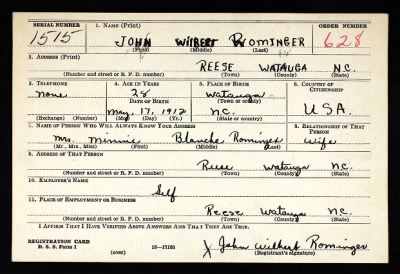 SERIAL NUMBER 1. NAME (Print) ORDER NUMBER
1515 JOHN WILBERT ROMINGER 628
(First) (Middle) (Last)
2. ADDRESS (Print)
REESE WATAUGA N.C.
(Number and street or R. F. D. number) (Town) (County) (State)
3. TELEPHONE 4. AGE IN YEARS 5. PLACE OF BIRTH 6. COUNTRY OF CITIZENSHIP
None 28 Watauga
DATE OF BIRTH (Town or county)
May 17, 1912 N.C. U.S.A.
(Exchange) (Number) (Mo.) (Day) (Yr.) (State or country)
7. NAME OF PERSON WHO WILL ALWAYS KNOW YOUR ADDRESS 8. RELATIONSHIP OF THAT PERSON
Mrs. Minnie Blanche Rominger Wife
(Mr., Mrs., Miss) (First) (Middle) (Last)
9. ADDRESS OF THAT PERSON
Reese Watauga N.C.
(Number and street or R. F. D. number) (Town) (County) (State)
10. EMPLOYER'S NAME
Self
11. PLACE OF EMPLOYMENT OR BUSINESS
Reese Watauga N.C.
(Number and street or R. F. D. number) (Town) (County) (State)
I AFFIRM THAT I HAVE VERIFIED ABOVE ANSWERS AND THAT THEY ARE TRUE.
REGISTRATION CARD
D. S. S. Form 1 (over) 16—17105 X John Wilbert Rominger
(Registrant's signature)